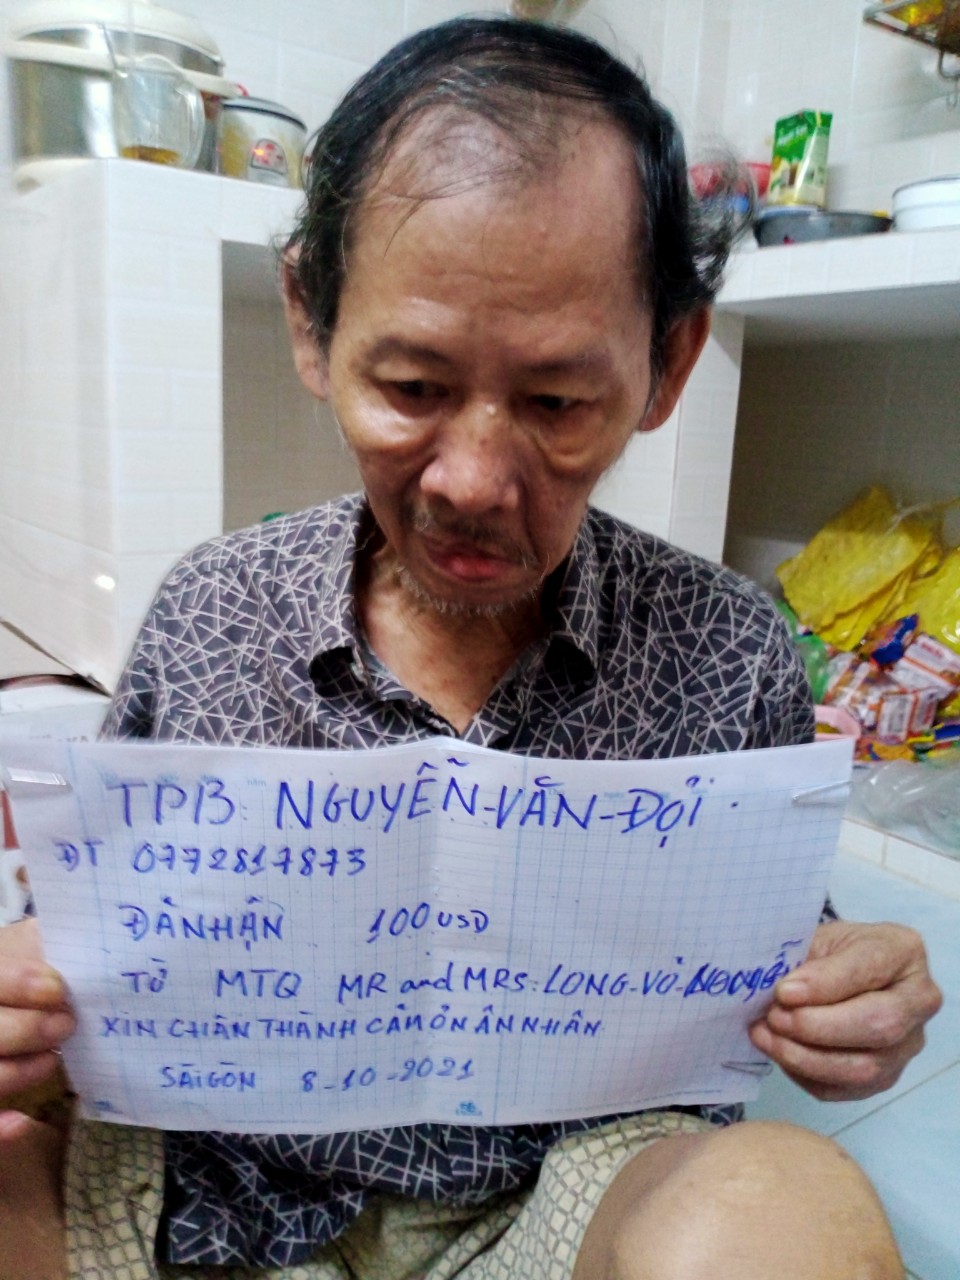 TPB NGUYỄN-VĂN-ĐỢI.
ĐT 0772817873
ĐÃ NHẬN 100 USD
TỪ MTQ MR and MRS: LONG-VÕ-NGUYỄN
XIN CHÂN THÀNH CẢM ƠN ÂN NHÂN
SÀIGÒN 8-10-2021